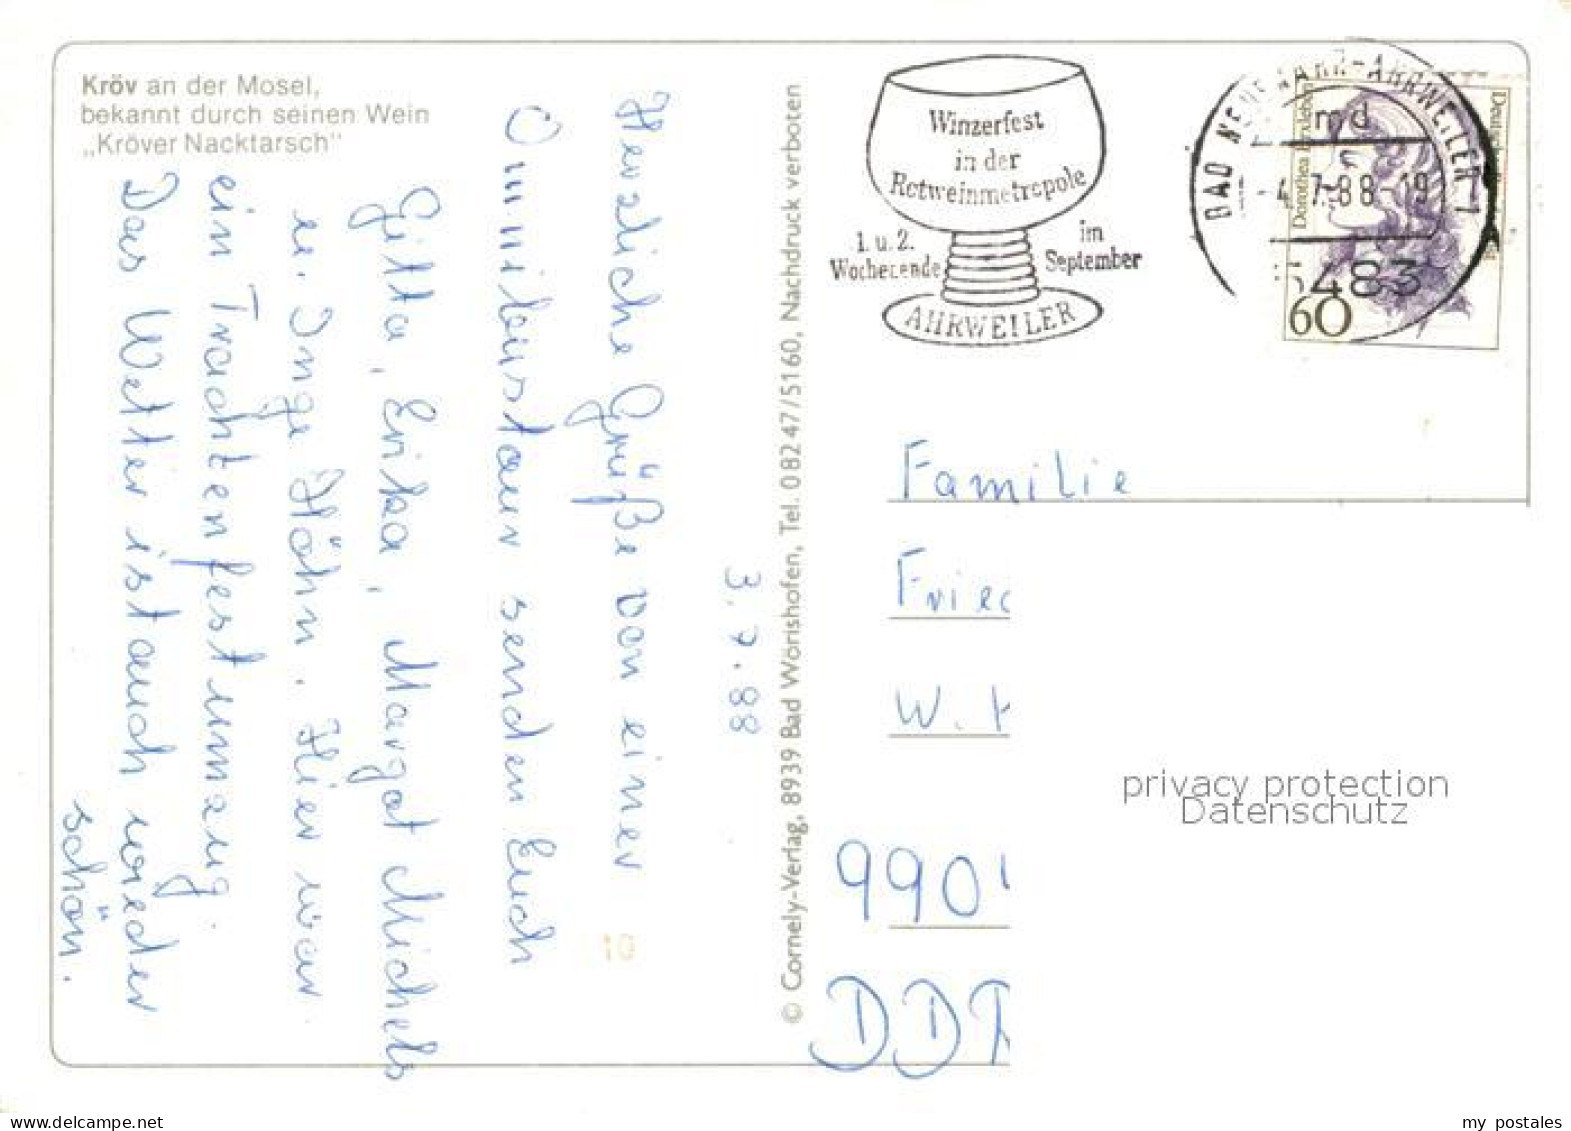 Kröv an der Mosel,
bekannt durch seinen Wein
„Kröver Nacktarsch"
3.7.88
Herzliche Grüße von einer
Omnibustour senden Euch
Gitta, Erika, Margot Michels
u. Inge Höhn. Hier war
ein Trachtenfestumzug.
Das Wetter ist auch wieder
schön.
10
© Cornely-Verlag, 8939 Bad Wörishofen, Tel. 08247/5160, Nachdruck verboten
Winzerfest
in der
Rotweinmetropole
1. u. 2.
Wochenende
im
September
AHRWEILER
BAD NEUENAHR-AHRWEILER 1
md
-4.7.88-19
5483
Dorothea Erxleben
Deutsche
60
Familie
Fried
W. H
990
DDR
privacy protection
Datenschutz
my postales